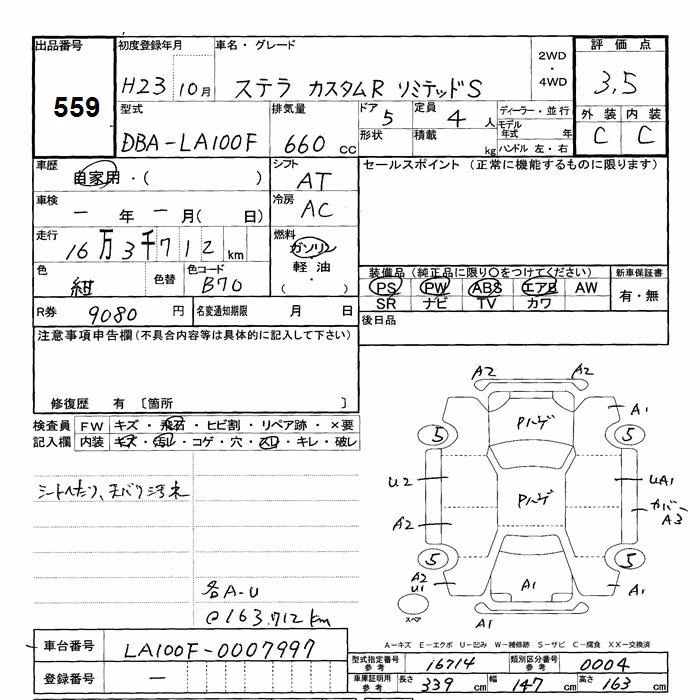 出品番号 初度登録年月 車名・グレード 2WD・4WD 評価点
559 H23 10月 ステラ カスタムR リミテッドS 3,5
型式 排気量 ドア 定員 ディーラー・並行 外装 内装
DBA-LA100F 660cc 5 4人 モデル年式 年 C C
形状 積載 kg ハンドル 左・右
車歴 自家用・( ) シフト AT セールスポイント(正常に機能するものに限ります)
車検 一年一月( 日) 冷房 AC
走行 16万3千712km 燃料 ガソリン・軽油・( )
色 紺 色替 色コード B70
装備品(純正品に限り○をつけてください) 新車保証書
PS PW ABS エアB AW 有・無
SR ナビ TV カワ
R券 9080円 名変通知期限 月 日 後日品
注意事項申告欄(不具合内容等は具体的に記入して下さい)
修復歴 有 〔箇所 〕
検査員 FW キズ・飛石・ヒビ割・リペア跡・×要
記入欄 内装 キズ・汚れ・コゲ・穴・スレ・キレ・破レ
シートヘたり、天バリ汚れ
各A-U
@163,712km
A2 A2
A1
Pハゲ
5 5
U2 Pハゲ UA1
カバー A3
A2
5 5
A2 U1 A1 A1
スペア A1
A-キズ E-エクボ U-凹み W-補修跡 S-サビ C-腐食 XX-交換済
車台番号 LA100F-0007997
型式指定番号 参考 16714 類別区分番号 参考 0004
登録番号 一
車庫証明用 参考 長さ 339cm 幅 147cm 高さ 163cm